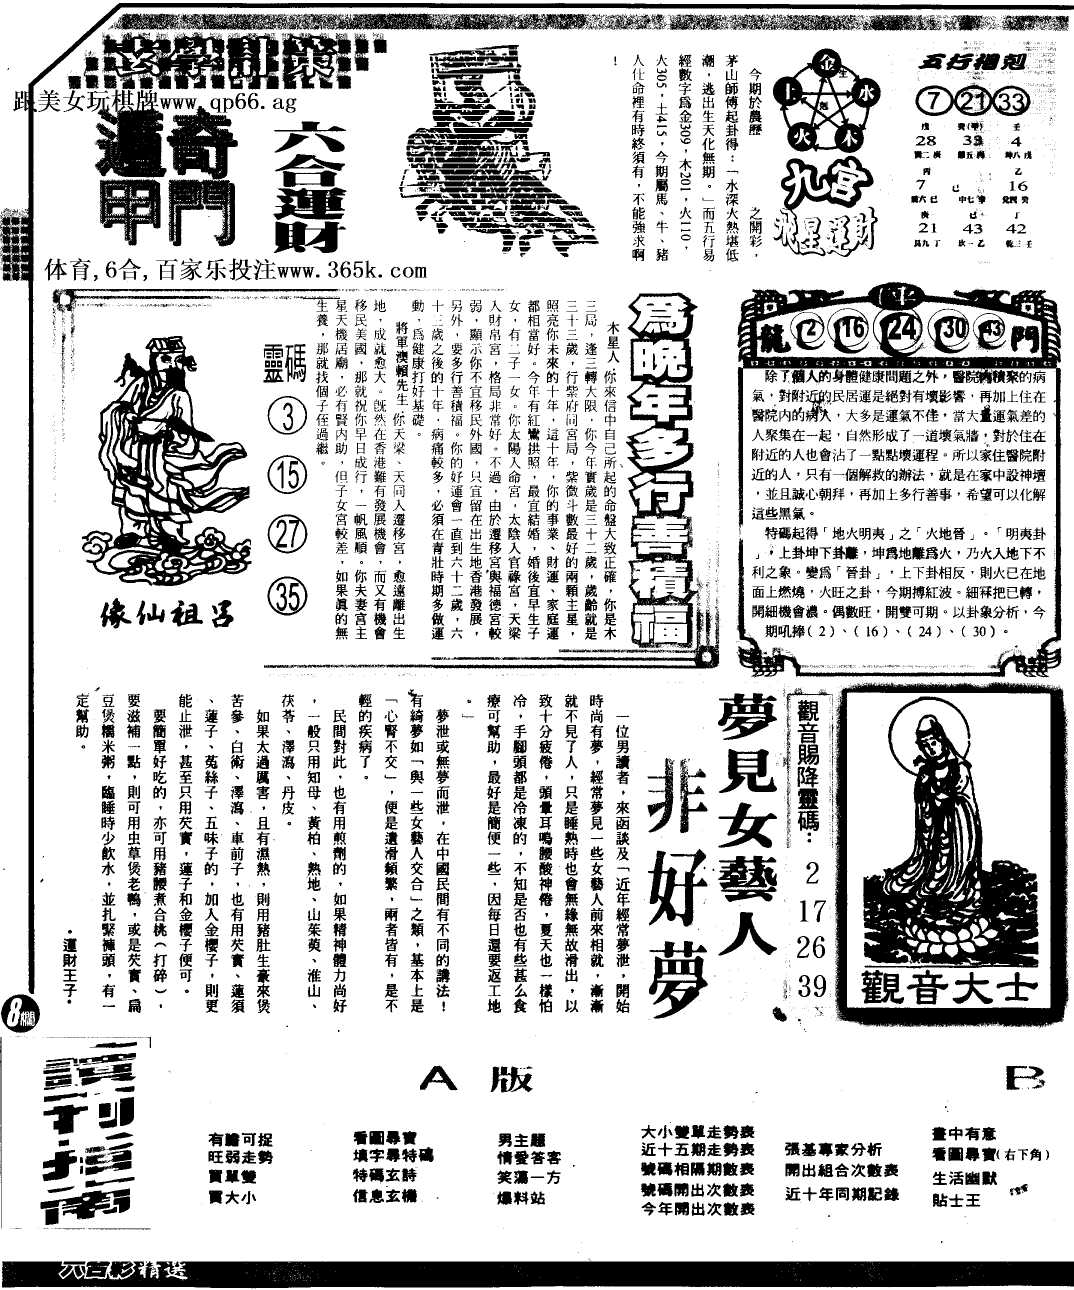 跟美女玩棋牌www.qp66.ag
奇門
遁甲
六合運財
体育,6合,百家乐投注www.365k.com
今期於農歷 之開彩，
茅山師傅起卦得：「水深火熱堪低
潮，逃出生天化無期。」而五行易
經數字爲金309，木201，火110，
火305，土415，今期屬馬、牛、豬
人仕命裡有時終須有，不能強求啊
！
金
水
木
火
土
生
九宮
飛星運財
五行相剋
7 21 33
28 33 4
7 16
21 43 42
爲晚年多行善積福
木星人 你來信中自己所起的命盤大致正確，你是木
三局，逢三轉大限，你今年實歲是三十二歲，歲齡就是
三十三歲，行紫府同宮局，紫微斗數最好的兩顆主星，
照亮你未來的十年，這十年，你的事業、財運、家庭運
都相當好。今年有紅鸞拱照，最宜結婚，婚後宜早生子
女，有二子一女。你太陽入命宮，太陰入官祿宮，天梁
入財帛宮，格局非常好。不過，由於遷移宮與福德宮較
弱，顯示你不宜移民外國，只宜留在出生地香港發展，
另外，要多行善積福。你的好運會一直到六十二歲，六
十三歲之後的十年，病痛較多，必須在青壯時期多做運
動，爲健康打好基礎。
將軍澳賴先生 你天梁、天同入遷移宮，愈遠離出生
地，成就愈大。既然在香港難有發展機會，而又有機會
移民美國，那就祝你早日成行，一帆風順。你夫妻宮主
星天機居廟，必有賢內助，但子女宮較差，如果眞的無
生養，那就找個子侄過繼。
靈碼
3
15
27
35
呂祖仙像
龍門
2 16 24 30 43
除了個人的身體健康問題之外，醫院內積聚的病
氣，對附近的民居運是絕對有壞影響，再加上住在
醫院內的病人，大多是運氣不佳，當大量運氣差的
人聚集在一起，自然形成了一道壞氣牆，對於住在
附近的人也會沾了一點點壞運程。所以家住醫院附
近的人，只有一個解救的辦法，就是在家中設神壇
，並且誠心朝拜，再加上多行善事，希望可以化解
這些黑氣。
特碼起得「地火明夷」之「火地晉」。「明夷卦
」，上卦坤下卦離，坤爲地離爲火，乃火入地下不
利之象。變爲「晉卦」，上下卦相反，則火已在地
面上燃燒，火旺之卦，今期搏紅波。細冧把已轉，
開細機會濃。偶數旺，開雙可期。以卦象分析，今
期吼捧(2)、(16)、(24)、(30)。
夢見女藝人
非好夢
一位男讀者，來函談及「近年經常夢泄，開始
時尚有夢，經常夢見一些女藝人前來相就，漸漸
就不見了人，只是睡熟時也會無緣無故滑出，以
致十分疲倦，頭暈耳鳴腰酸神倦，夏天也一樣怕
冷，手腳頭都是冷凍的，不知是否也有些甚么食
療可幫助，最好是簡便一些，因每日還要返工地
。」
夢泄或無夢而泄，在中國民間有不同的講法！
有綺夢如「與一些女藝人交合」之類，基本上是
「心腎不交」，便是遺滑頻繁，兩者皆有，是不
輕的疾病了。
民間對此，也有用煎劑的，如果精神體力尚好
，一般只用知母、黃柏、熟地、山茱萸、淮山、
茯苓、澤瀉、丹皮。
如果太過厲害，且有濕熱，則用豬肚生豪來煲
苦參、白術、澤瀉、車前子，也有用芡實、蓮須
、蓮子、菟絲子、五味子的，加入金櫻子，則更
能止泄，甚至只用芡實，蓮子和金櫻子便可。
要簡單好吃的，亦可用豬腰煮合桃(打碎)，
要滋補一點，則可用虫草煲老鴨，或是芡實、扁
豆煲糯米粥，臨睡時少飲水，並扎緊褲頭，有一
定幫助。
•運財王子•
觀音賜降靈碼：
2
17
26
39
觀音大士
8欄
讀刊指南
A 版
有瞻可捉
旺弱走勢
買單雙
買大小
看圖尋寶
填字尋特碼
特碼玄詩
信息玄機
男主題
情愛答客
笑蕩一方
爆料站
大小雙單走勢表
近十五期走勢表
號碼相隔期數表
號碼開出次數表
今年開出次數表
B
張基專家分析
開出組合次數表
近十年同期記錄
畫中有意
看圖尋寶(右下角)
生活幽默
貼士王
六合彩精選